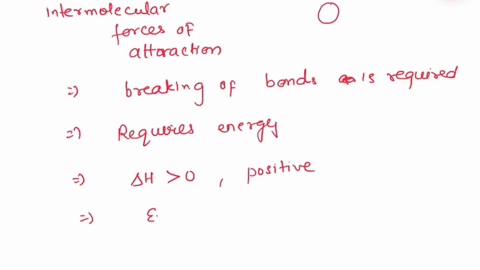 Intermolecular
forces of
attraction
⇒ breaking of bonds is required
⇒ Requires energy
⇒ ΔH > 0 , positive
⇒ ε